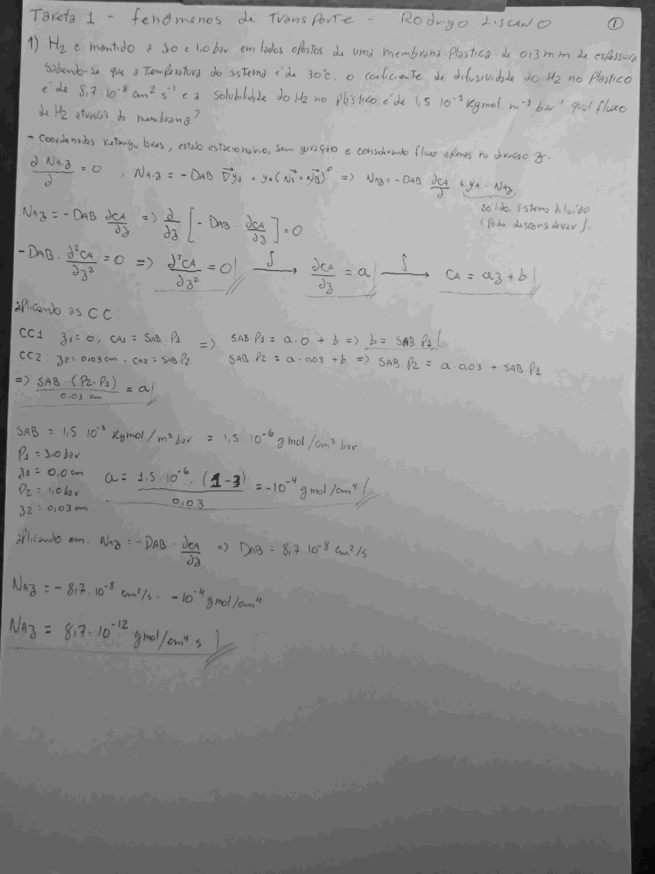 Tarefa 1 - fenômenos de Transporte - Rodrigo Liscano ①
1) H2 e mantido a 3.0 e 1.0 bar em lados opostos de uma membrana Plastica de 0,3 mm de espessura
Sabendo-se que a Temperatura do sistema é de 30°C. o coeficiente de difusividade do H2 no Plastico
é de 8,7.10⁻⁸ cm² s⁻¹ e a solubilidade do H2 no plástico é de 1,5 10⁻³ Kgmol m⁻³ bar⁻¹ qual fluxo
de H2 através da membrana?
- Coordenadas retangulares, estado estacionário, sem geração e considerando fluxo apenas na direção z.
∂ NA.z / ∂ = 0 , NA.z = - DAB ∇yA + yA (NA + NB)⁰ => NAz = - DAB ∂CA / ∂ + yA . NAz
sólido sistema diluído
(Pode desconsiderar).
NAz = - DAB ∂CA / ∂z => ∂ / ∂z [ - DAB . ∂CA / ∂z ] = 0
- DAB . ∂²CA / ∂z² = 0 => ∂²CA / ∂z² = 0 ∫→ ∂CA / ∂z = a ∫→ CA = az + b
aplicando as CC:
CC1 z1 = 0, CA1 = SAB. P1 => SAB P1 = a. 0 + b => b = SAB P1
CC2: z2 = 0,03 cm, CA2 = SAB P2 SAB. P2 = a. 0,03 + b => SAB. P2 = a 0,03 + SAB. P1
=> SAB . (P2-P1) / 0,03 cm = a
SAB = 1,5 10⁻³ Kgmol / m³ bar = 1,5. 10⁻⁶ gmol / cm³ bar
P1 = 3.0 bar
z1 = 0,0 cm a = 1,5. 10⁻⁶ . (1-3) / 0,03 = -10⁻⁴ gmol / cm⁴
P2 = 1,0 bar
z2 = 0,03 cm
aplicando em: NAz = - DAB . ∂CA / ∂z => DAB = 8,7 10⁻⁸ cm²/s
NAz = - 8,7. 10⁻⁸ cm²/s . -10⁻⁴ gmol/cm⁴
NAz = 8,7. 10⁻¹² gmol/cm⁴.s